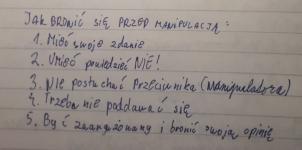 JAK BRONIĆ SIĘ PRZED MANIPULACJĄ:
1. Mieć swoje zdanie
2. Umieć powiedzieć NIE!
3. Nie posłuchać przeciwnika (manipulatora)
4. Trzeba nie poddawać się
5. Być zaangażowany i bronić swoją opinię